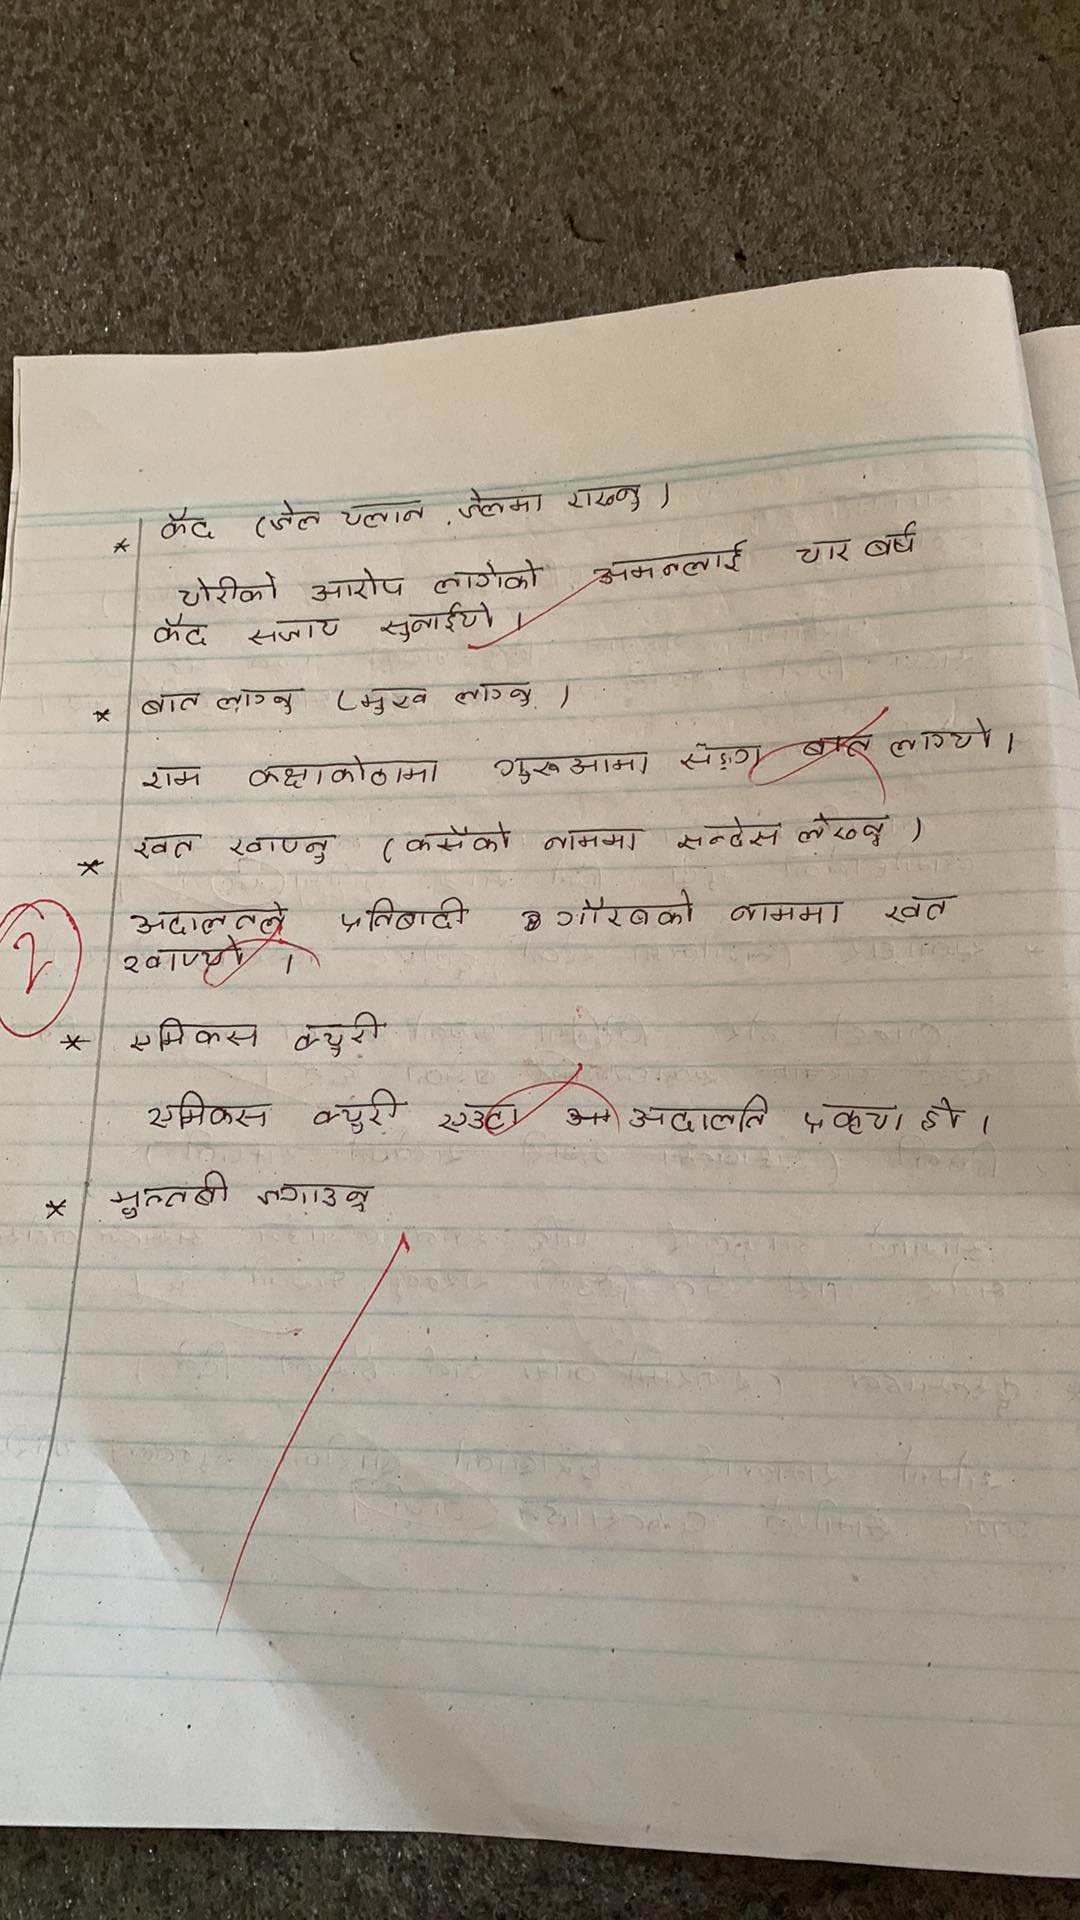 * कैद (जेल चलान, जेलमा राख्नु)
चोरीको आरोप लागेको अमनलाई चार बर्ष
कैद सजाय सुनाईयो ।
* बात लाग्नु (मुख लाग्नु)
राम कक्षाकोठामा गुरुआमा सँङ्ग बात लाग्यो ।
* खत खाप्नु (कसैको नाममा सन्देस लेख्नु)
अदालतले प्रतिबादी गौरबको नाममा खत
खाप्यो ।
2
* एमिकस क्युरी
एमिकस क्युरी एउटा अदालति प्रकृया हो ।
* मुल्तबी जगाउनु